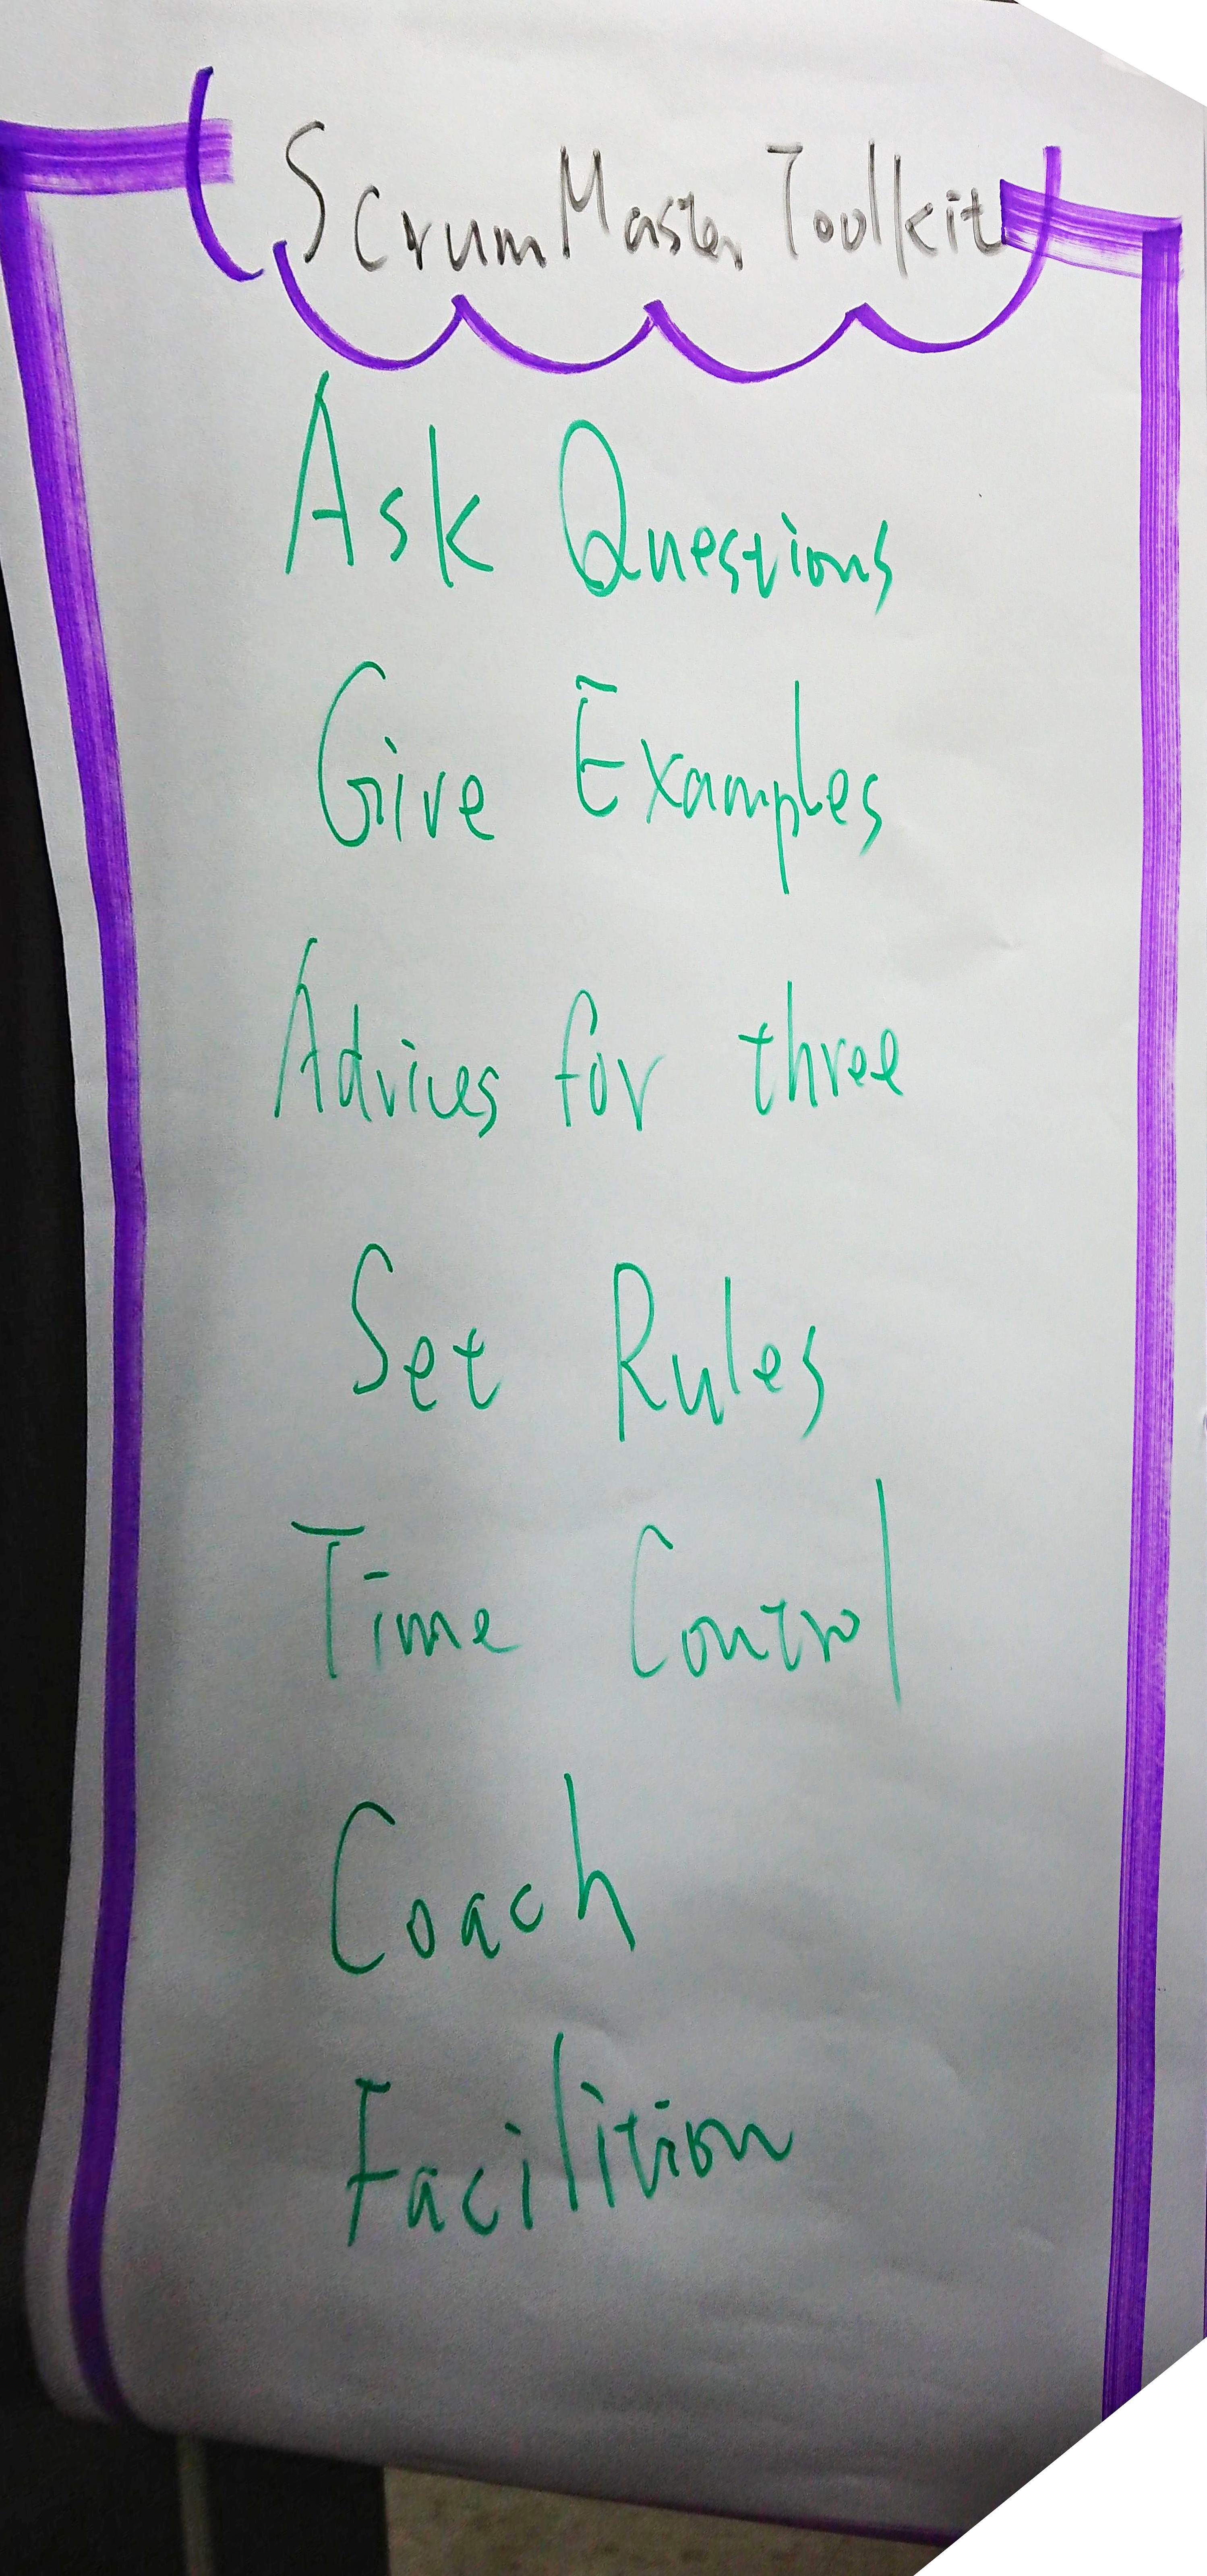 ScrumMaster Toolkit
Ask Questions
Give Examples
Advices for three
Set Rules
Time Control
Coach
Facilition